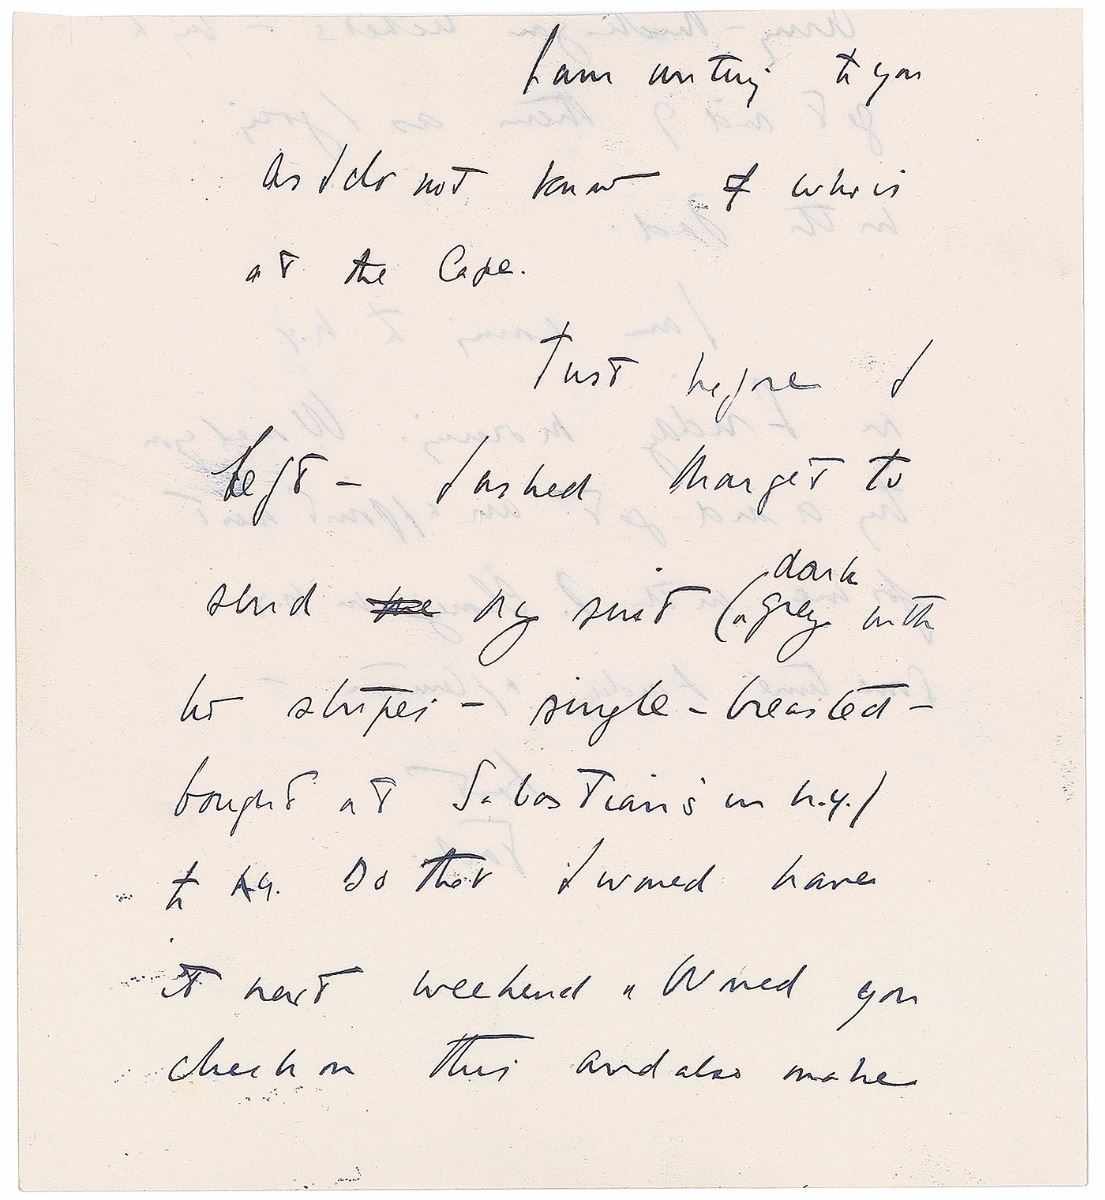 I am writing to you
as I do not know who is
at the Cape.
Just before I
left – I asked Margaret to
send my suit (a dark grey with
no stripes – single – breasted –
bought at Sabastian's in N.Y./
to N.Y. So that I would have
it next weekend. Would you
check on this and also make